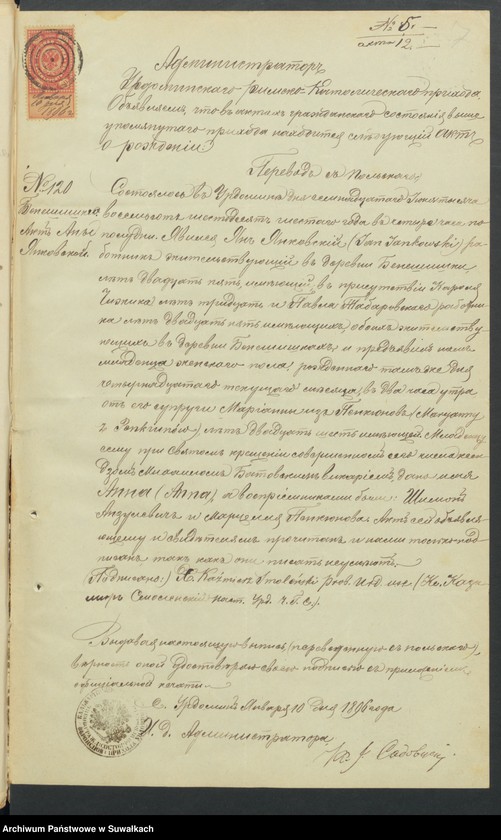 № 5.
акта 12.
Администраторъ
Урдоминскаго Римско-Католическаго прихода
Объявляетъ, что въ актахъ гражданскаго состоянія выше
упомянутаго прихода находится следующій актъ
о рожденіи:
Переводъ съ Польскаго.
№ 120
Бенешишки
Актъ Анны
Янковской.
Состоялось въ Урдоминѣ дня семнадцатаго Іюля тысяча
восемьсотъ шестьдесятъ шестаго года въ четыре часа по
полудни. Явился Янъ Янковскій (Jan Jankowski) ра-
ботникъ жительствующій въ деревни Бенешишки
лѣтъ двадцать пять имѣющій въ присутствіи Кароля
лѣтъ тридцать и Павла Табаровскаго работни-
ка лѣтъ двадцать пять имѣющихъ, обоихъ жительству-
ющихъ въ деревни Бенешишкахъ и предъявилъ намъ
младенца женскаго пола, рожденнаго тамъ же дня
четырнадцатаго текущаго мѣсяца, въ два часа утра
отъ его супруги Маріанны изъ (Maryanny
z ) лѣтъ двадцать шесть имѣющей. Младен-
цу сему при Святомъ крещеніи совершенномъ сего числа ксен-
дзомъ викаріемъ, дано имя
Анна (Anna) а воспріемниками были: Шимонъ
Анзулевичъ и Марцелла Актъ сей объявля-
ющему и свидѣтелямъ прочитанъ и нами только под-
писанъ такъ какъ они писать неумѣютъ.
Подписано:) X. Kaźmierz Smoleński prob. Urd. (Кс. Кази-
миръ Смоленскій наст. Урд. ч. Г. С.).
Выдавая настоящую выпись (переведенную съ польскаго),
вѣрность оной удостовѣряю своею подписью съ приложеніемъ
оффиціальной печати.
С. Урдоминъ Января 10 дня 1896 года
И. д. Администратора
Садовскій.
Archiwum Państwowe w Suwałkach